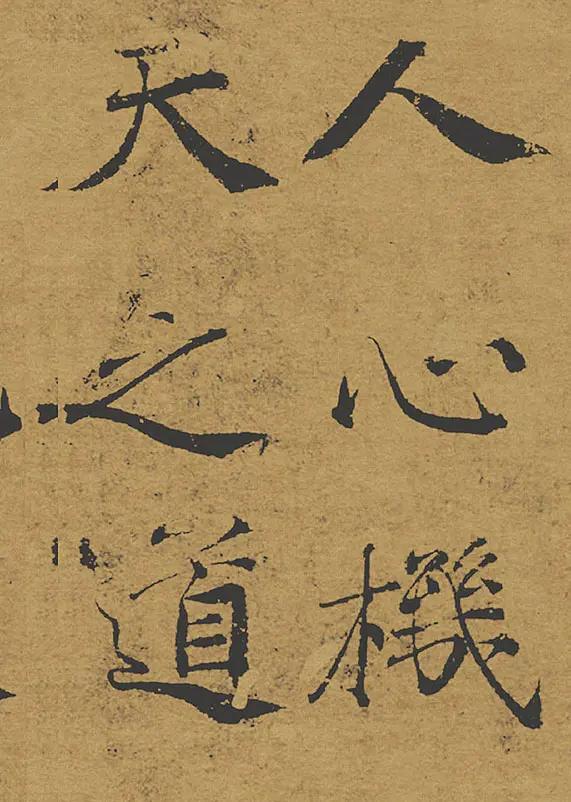 人心機
天之道